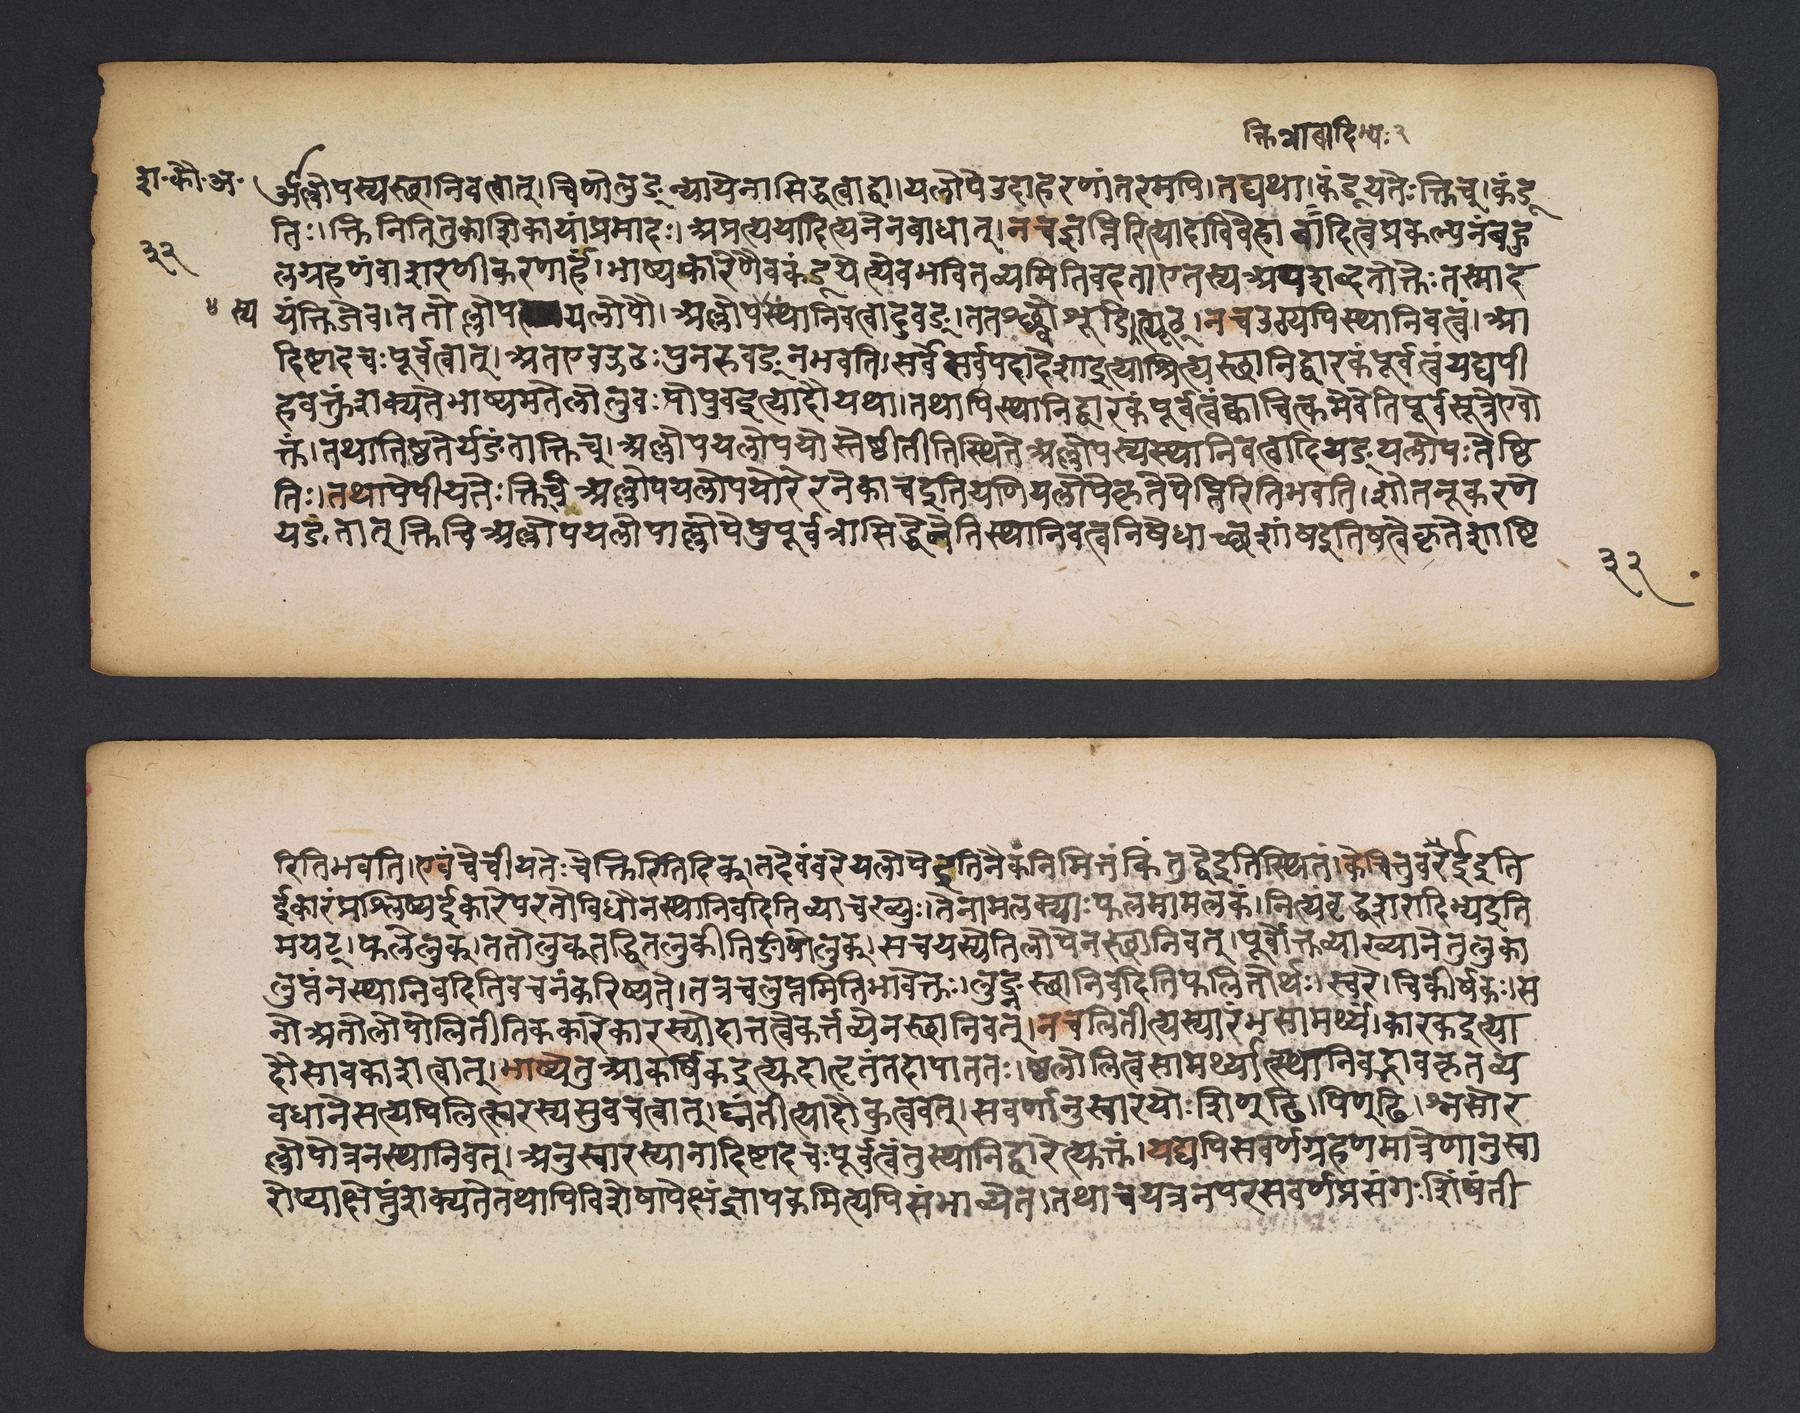 क्तिन्नाबादिभ्यः २
श॰ कौ॰ अ॰
अल्लोपस्यस्थानिवत्वात्। चिणोलुङ् न्यायेनासिद्धत्वाद्वा। यलोपेउदाहरणांतरमपि। तद्यथा। कंडूयतेः क्तिच्। कंडू
तिः। क्तिनितितुकाशिकायांप्रमादः। अप्रत्ययादित्यनेनबाधात्। नचज्ञप्तिरित्यादाविवेहा बादित्वप्रकल्प्यनंबहु
३२
लग्रहणंवाशरणीकरणार्हं। भाष्यकारेणैवकंडूयेत्येवभवितव्यमितिवदताएतस्यअपशब्दतोक्तेः तस्माद
४ स्य
यंक्तिजेव। ततोल्लोप यलोपौ। अल्लोपस्यस्थानिवत्वादुवङ्। ततश्च्छ्वोःशूडित्यूठ्। नचउठ्यपिस्थानिवत्वं। आ
दिष्टादचःपूर्वत्वात्। अतएवउठः पुनरुवङ्नभवति। सर्वेसर्वपदादेशाइत्याश्रित्यस्थानिद्वारकंपूर्वत्वंयद्यपी
हवक्तुंशक्यतेभाष्यमतेलौलुवः पौपुवइत्यादौयथा। तथापिस्थानिद्वारकंपूर्वत्वंक्वाचित्कमेवेतिपूर्वसूत्रेएवो
क्तं। तथातिष्ठतेर्यङंतात्क्तिच्। अल्लोपयलोपयोस्तेष्ठीतीतिस्थितेअल्लोपस्यस्थानिवत्वादियङ्यलोपः तेष्ठि
तिः। तथापेपीयतेः क्तिचि अल्लोपयलोपयोरेरनेकाचइतियणियलोपेकृतेपेप्तिरितिभवति। शोतनूकरणे
यङंतात् क्तिचिअल्लोपयलोपाल्लोपेषुपूर्वत्रासिद्धेनेतिस्थानिवत्वनिषेधाच्छशांषइतिषत्वेकृतेशाष्टि
३२
रितिभवति। एवंचेचीयतेः चेक्तिरितिदिक्। तदेवंवरेयलोपेइतिनैकंनिमित्तंकिंतुद्वेइतिस्थितं। केचित्तुवरेईइति
ईकारंप्रश्लिष्यईकारेपरतोविधौनस्थानिवदितिव्याचख्युः। तेनामलक्याः फलमामलकं। नित्यंवृद्धशरादिभ्यइति
मयट्। फलेलुक्। ततोलुक्तद्धितलुकीतिङीषोलुक्। सचयस्येतिलोपेनस्थानिवत्। पूर्वोक्तव्याख्यानेतुलुका
लुप्तंनस्थानिवदितिवचनंकरिष्यते। तत्रचलुप्तमितिभावेक्तः। लुङ्नस्थानिवदितिफलितोर्थः। स्वरे। चिकीर्षकः। स
नोअतोलोपोलितीतिककारेकारस्योदात्तत्वेकर्त्तव्येनस्थानिवत्। नचलितीत्यस्यारंभसामर्थ्यं। कारकइत्या
दौसावकाशत्वात्। भाष्येतुआकर्षिकइत्युदाहृतंतदापाततः। ष्ठलोलित्वसामर्थ्यात्स्थानिवद्भावकृतव्य
वधानेसत्यपिलित्स्वरस्यसुवचत्वात्। घ्नंतीत्यादौकुत्ववत्। सवर्णानुस्वारयोः शिण्ढि। पिण्ढि। श्नसोर
ल्लोपोत्रनस्थानिवत्। अनुस्वारस्यानादिष्टादचः पूर्वत्वंतुस्थानिद्वारेत्युक्तं। यद्यपिसवर्णग्रहणमात्रेणानुस्वा
रोप्याक्षेप्तुंशक्यतेतथापिविशेषापेक्षंज्ञापकमित्यपिसंभाव्येत। तथाचयत्रनपरसवर्णप्रसंगः शिंषंती